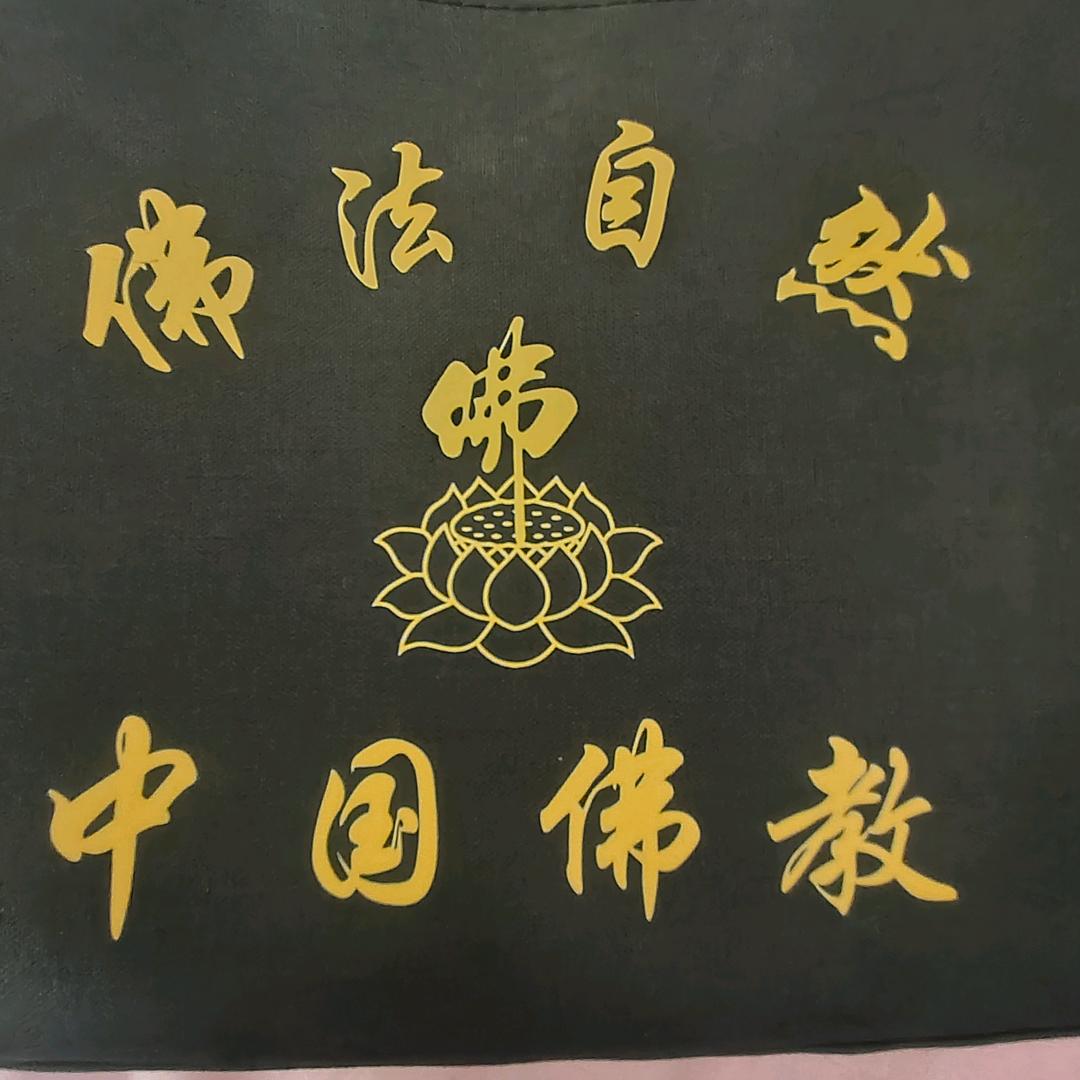 佛法自然
佛
中国佛教